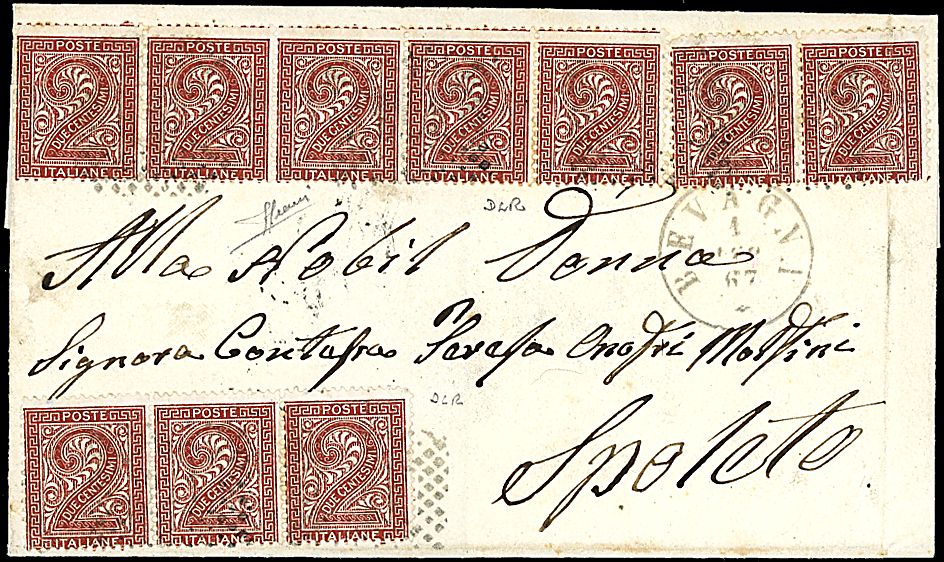 POSTE POSTE POSTE POSTE POSTE POSTE POSTE
DUE CENTESIMI DUE CENTESIMI DUE CENTESIMI DUE CENTESIMI DUE CENTESIMI DUE CENTESIMI DUE CENTESIMI
2 2 2 2 2 2 2
ITALIANE ITALIANE ITALIANE ITALIANE ITALIANE ITALIANE ITALIANE
DLR
BEVAGNA
1
67
Alla Nobil Donna
Signora Contessa Teresa Onofri Martini
DLR
Spoleto
POSTE POSTE POSTE
DUE CENTESIMI DUE CENTESIMI DUE CENTESIMI
2 2 2
ITALIANE ITALIANE ITALIANE